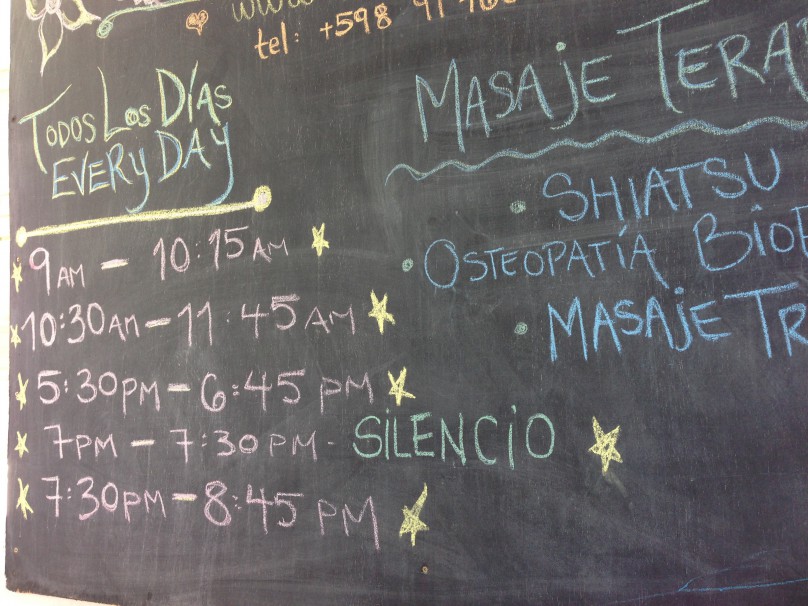 tel: +598 91
TODOS LOS DÍAS
EVERY DAY
9AM - 10:15AM
10:30AM - 11:45AM
5:30PM - 6:45 PM
7PM - 7:30PM - SILENCIO
7:30PM - 8:45 PM
MASAJE
SHIATSU
OSTEOPATÍA
MASAJE